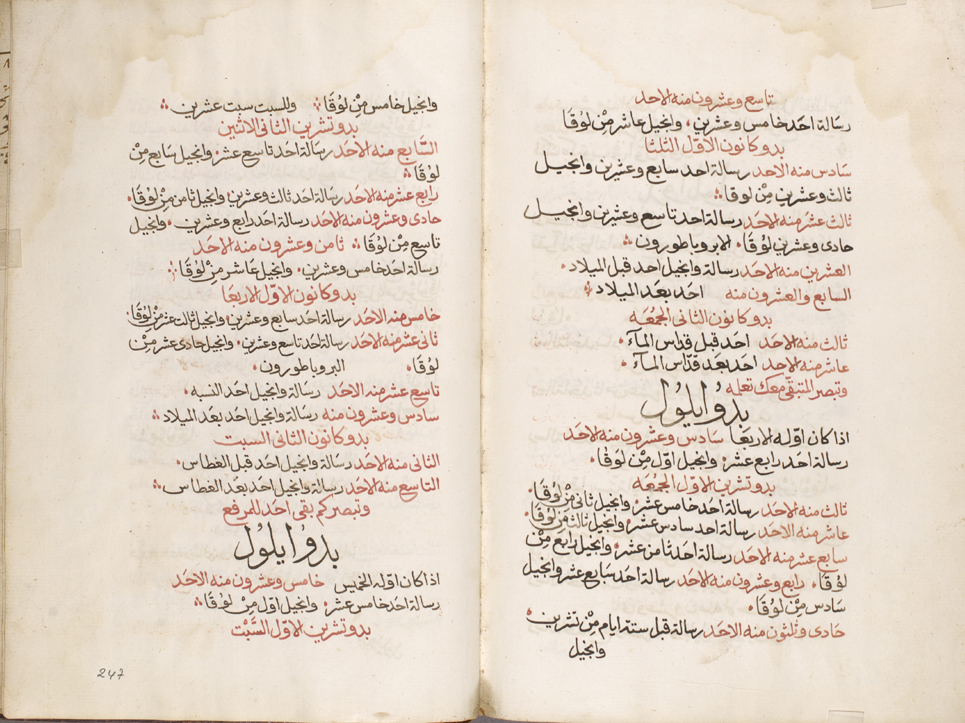 تاسع وعشرون منه الاحد
رسالة احد خامس وعشرين، وانجيل عاشر من لوقا
بدو كانون الاول الثلثا
سادس منه الاحد رسالة احد سابع وعشرين وانجيل
ثالث وعشرين من لوقا
ثالث عشر منه الاحد رسالة احد تاسع وعشرين وانجيل
حادى وعشرين لوقا، الابروباطورون
العشرين منه الاحد رسالة وانجيل احد قبل الميلاد
السابع والعشرون منه احد بعد الميلاد
بدو كانون الثانى الجمعه
ثالث منه الاحد احد قبل قداس المآ
عاشر منه الاحد احد بعد قداس المآ
وتبصر المتبقى معك تعمله
بدو ايلول
اذا كان اوله الاربعا سادس وعشرون منه الاحد
رسالة احد رابع عشر، وانجيل اول من لوقا
بدو تشرين الاول الجمعه
ثالث منه الاحد رسالة احد خامس عشر، وانجيل ثانى من لوقا
عاشر منه الاحد رسالة احد سادس عشر، وانجيل ثالث من لوقا
سابع عشر منه الاحد رسالة احد ثامن عشر، وانجيل رابع من
لوقا، رابع وعشرون منه الاحد رسالة احد سابع عشر وانجيل
سادس من لوقا
حادى وثلثون منه الاحد رسالة قبل ستة ايام من تشرين
وانجيل
وانجيل خامس من لوقا وللسبت سبت عشرين
بدو تشرين الثانى الاثنين
السابع منه الاحد رسالة احد تاسع عشر، وانجيل سابع من
لوقا
رابع عشر منه الاحد رسالة احد ثالث وعشرين وانجيل ثامن من لوقا
حادى وعشرون منه الاحد رسالة احد رابع وعشرين، وانجيل
تاسع من لوقا ثامن وعشرون منه الاحد
رسالة احد خامس وعشرين، وانجيل عاشر من لوقا
بدو كانون الاول الاربعا
خامس منه الاحد رسالة احد سابع وعشرين، وانجيل ثالث عشر من لوقا
ثانى عشر منه الاحد رسالة احد تاسع وعشرين، وانجيل حادى عشر من
لوقا البروباطورون
تاسع عشر منه الاحد رسالة وانجيل احد النسبه
سادس وعشرون منه رسالة وانجيل احد بعد الميلاد
بدو كانون الثانى السبت
الثانى منه الاحد رسالة وانجيل احد قبل الغطاس
التاسع منه الاحد رسالة وانجيل احد بعد الغطاس
وتبصر كم بقى احد للمرفع
بدو ايلول
اذا كان اوله الخميس خامس وعشرون منه الاحد
رسالة احد خامس عشر، وانجيل اول من لوقا
بدو تشرين الاول السبت
247